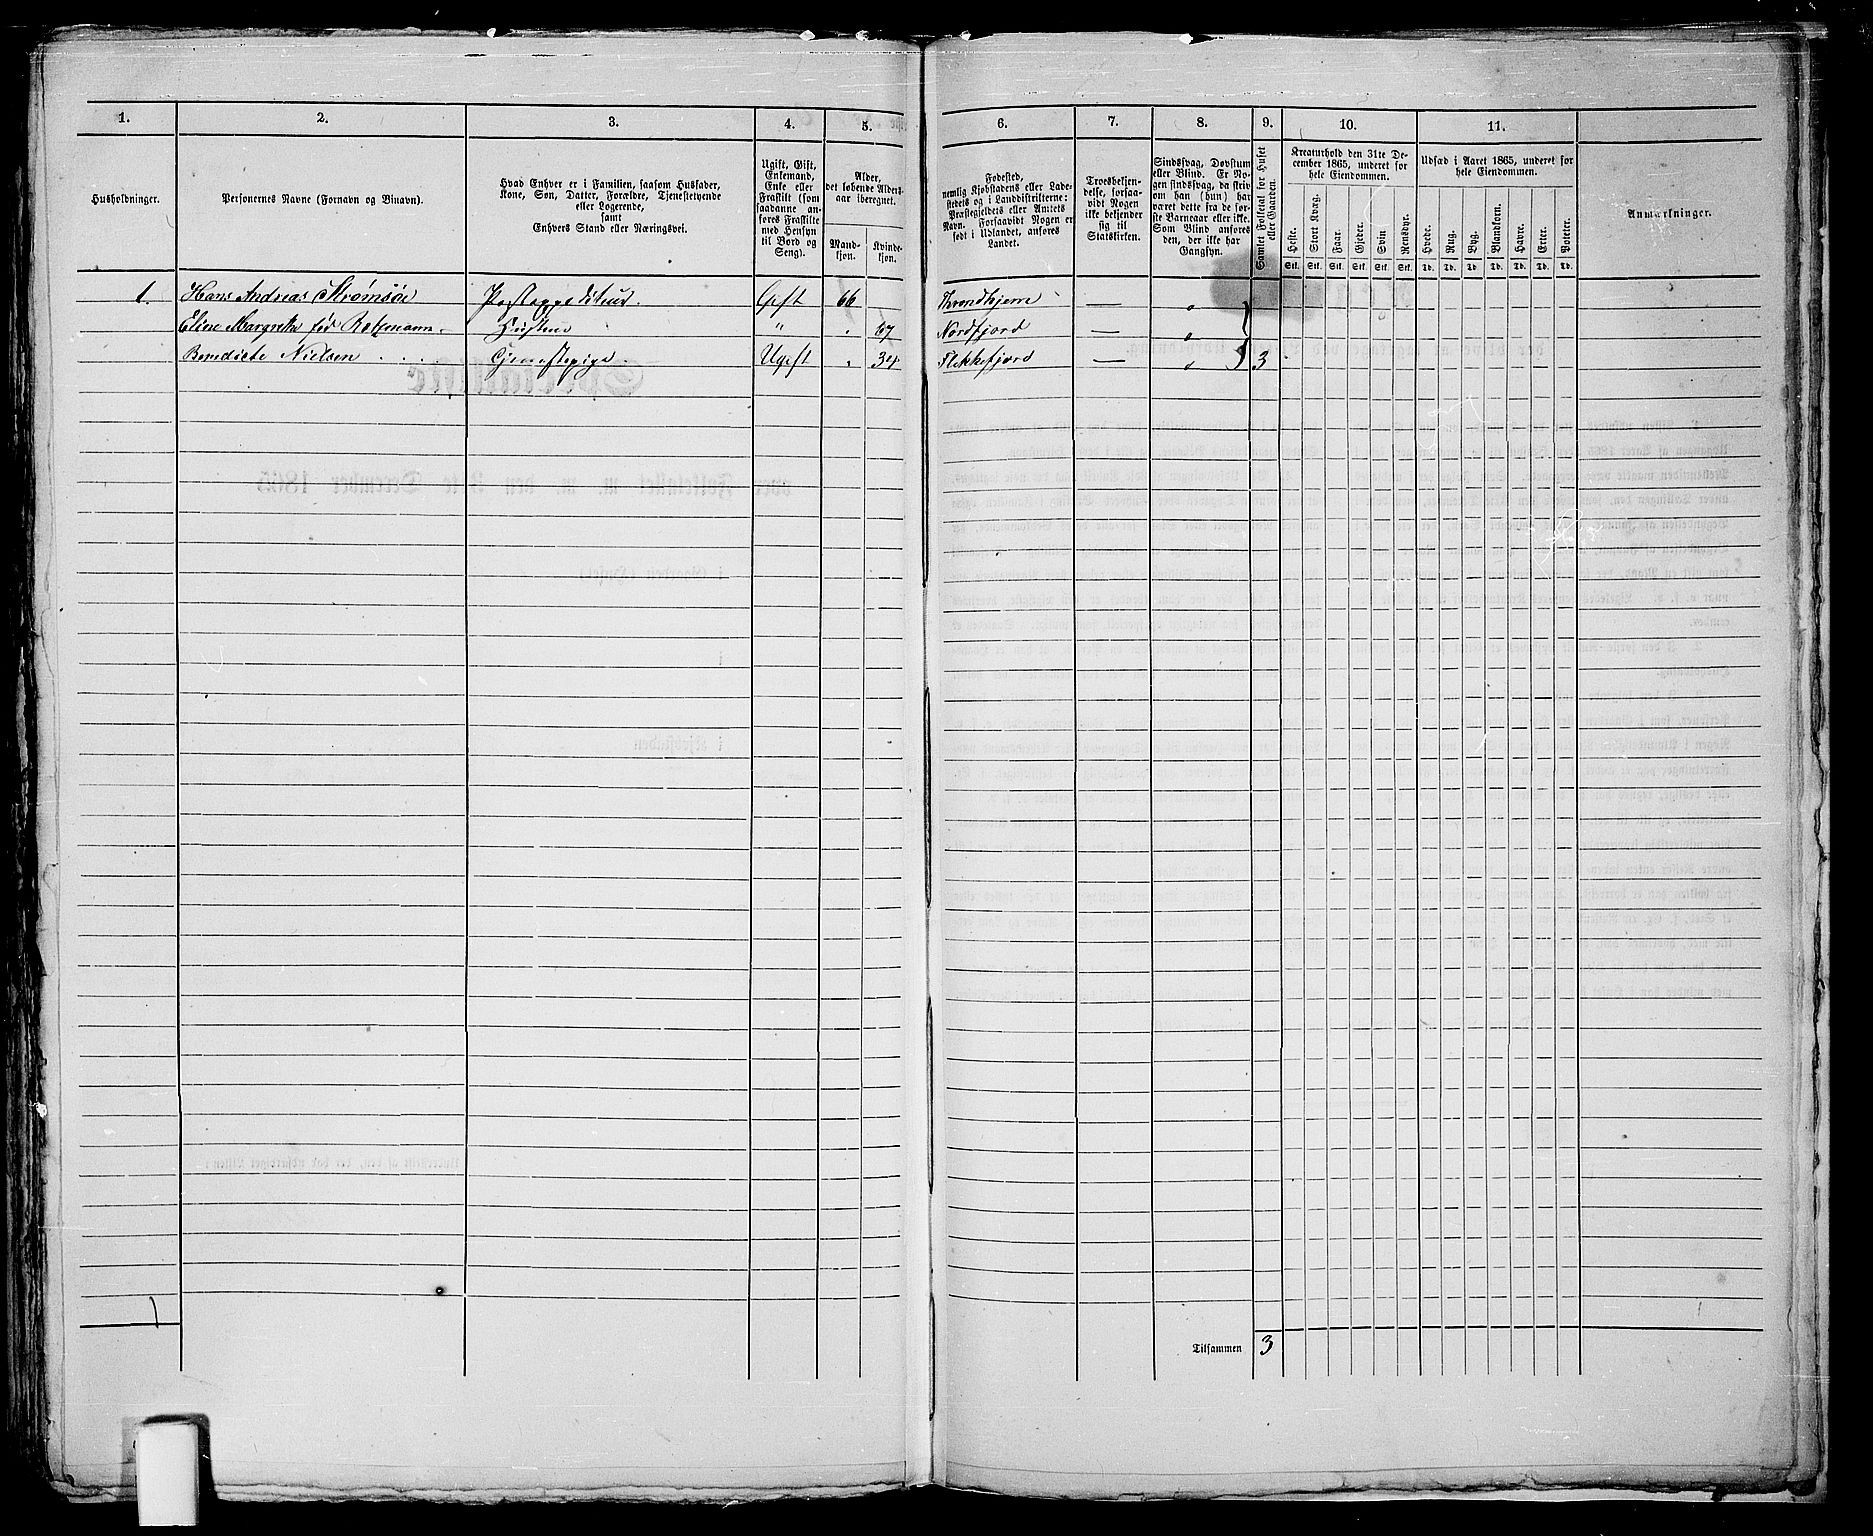 1. 2. 3. 4. 5. 6. 7. 8. 9. 10. 11.
Husholdninger.
Personernes Navne (Fornavn og Binavn).
Hvad Enhver er i Familien, saasom Husfader,
Kone, Søn, Datter, Forældre, Tjenestetyende
eller Logerende,
samt
Enhvers Stand eller Næringsvei.
Ugift, Gift,
Enkemand,
Enke eller
Fraskilt (som
saadanne an-
føres Fraskilte
med Hensyn
til Bord og
Seng).
Alder,
det løbende Alders-
aar iberegnet.
Mand-
kjøn.
Kvinde-
kjøn.
Fødested,
nemlig Kjøbstadens eller Lade-
stedets og i Landdistrikterne:
Præstegjeldets eller Amtets
Navn. Forsaavidt Nogen er
født i Udlandet, anføres
Landet.
Troesbekjen-
delse, forsaa-
vidt Nogen
ikke bekjender
sig til
Statskirken.
Sindssvag, Døvstum
eller Blind. Er No-
gen sindssvag, da skriv
om han (hun) har
været dette fra de før-
ste Barneaar eller ikke.
Som Blind anføres
den, der ikke har
Gangsyn.
Samlet Folketal for Huset
eller Gaarden.
Kreaturhold den 31te De-
cember 1865, underet for
hele Eiendommen.
Heste. Stort Kvæg. Faar. Gjeder. Svin Rensdyr.
Stk. Stk. Stk. Stk. Stk. Stk.
Udsæd i Aaret 1865, underet for
hele Eiendommen.
Hvede. Rug. Byg. Blandkorn. Havre. Erter. Poteter.
Td. Td. Td. Td. Td. Td. Td.
Anmærkninger.
1. Hans Andreas Strømsøe Postexpediteur. Gift 66 Throndhjem — „
Eline Margretha fød Hustru " . 67 Nordfjord — „
Benedicte Nielsen . . . . Tjenestepige. Ugift „ 34 Flekkefjord — „ 3
1
Tilsammen 3